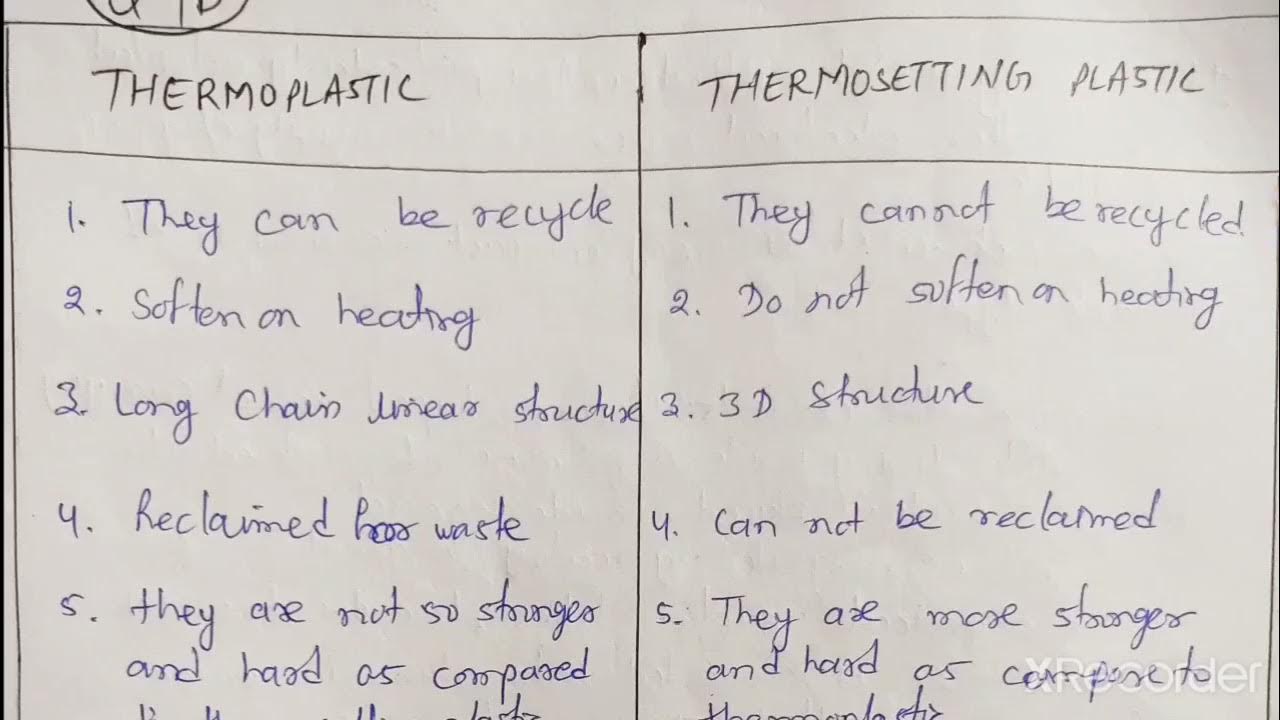 THERMOPLASTIC
THERMOSETTING PLASTIC
1. They can be recycle
2. Soften on heating
3. Long Chain linear structure
4. Reclaimed waste
5. they are not so stronger
and hard as compared
1. They cannot be recycled.
2. Do not soften on heating
3. 3D Structure
4. Can not be reclaimed
5. They are more stronger
and hard as compare to
thermoplastic
XRecorder